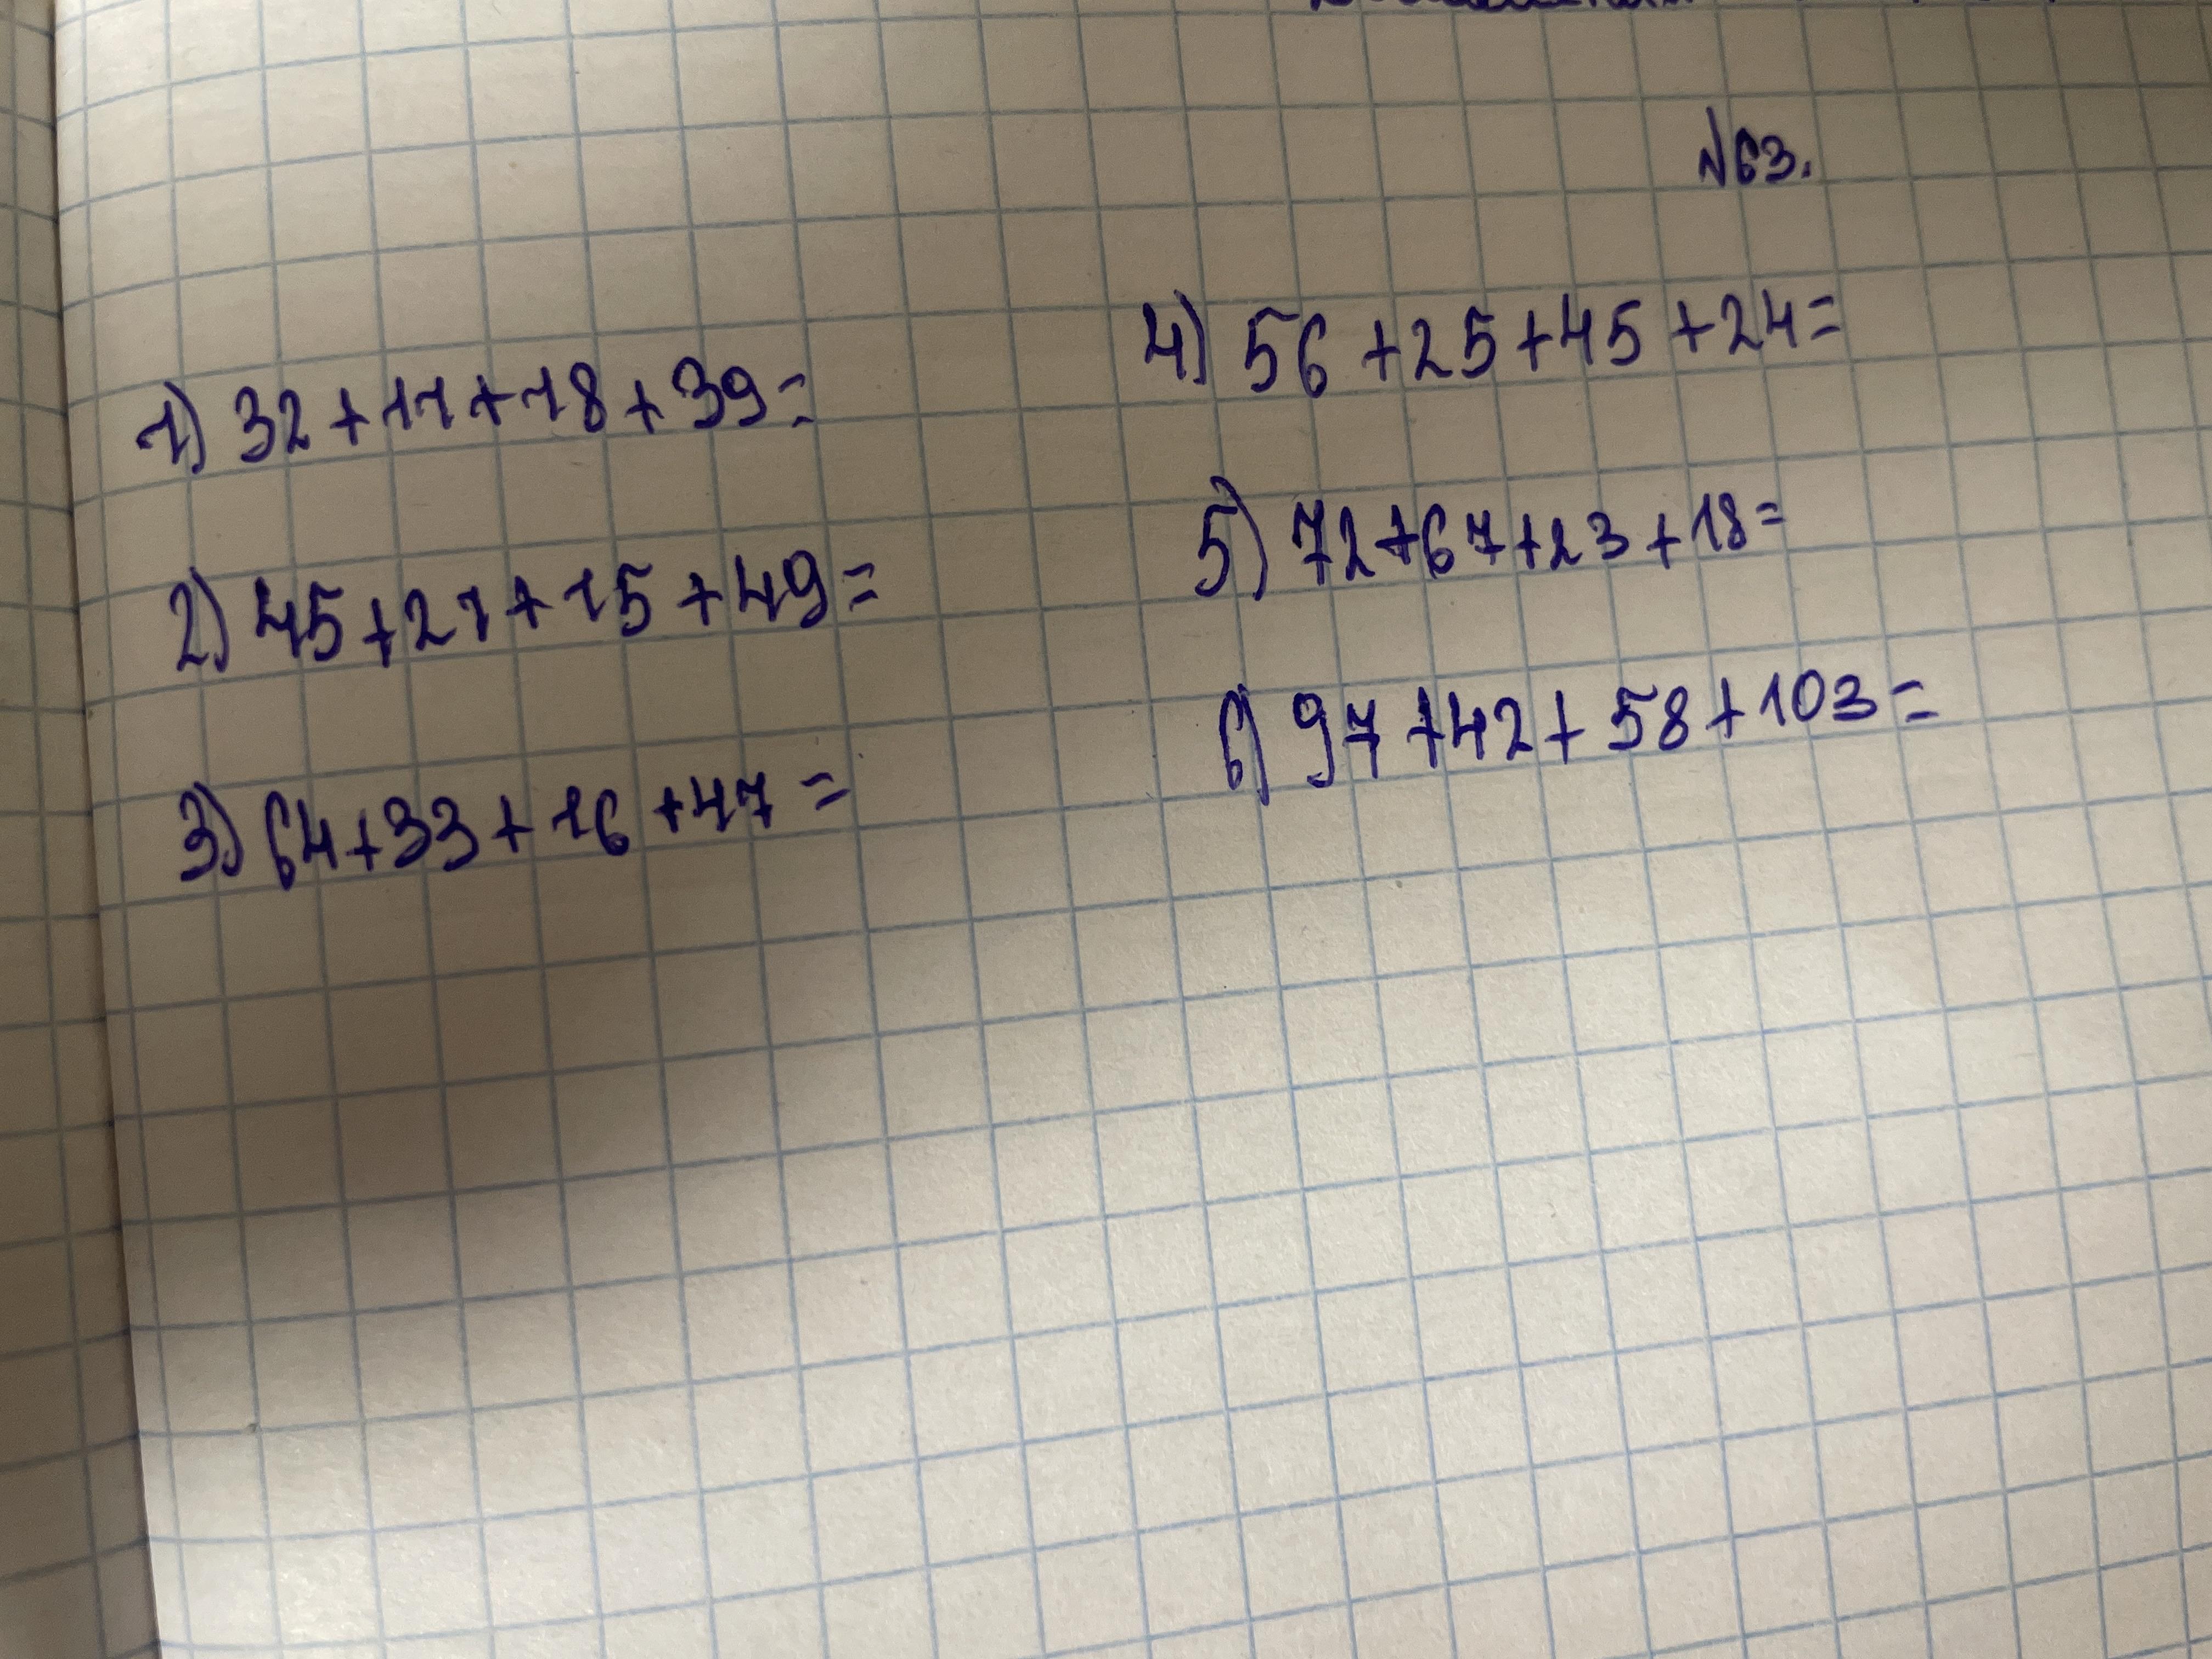 №63.
1) 32+11+18+39=
2) 45+21+15+49=
3) 64+33+16+47=
4) 56+25+45+24=
5) 72+67+23+18=
6) 97+42+58+103=